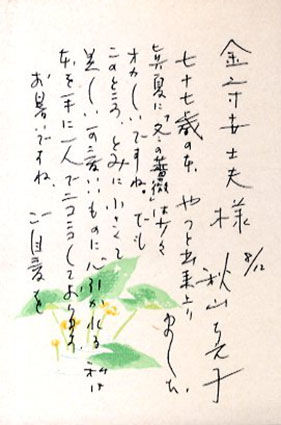 金守世士夫様
8/12
秋山亮子
七十七歳の本 やっと出来上り
ました。
真夏に「冬の薔薇」は少々
オカしいですね。でも
このところ とみに小さくて
美しい可愛いものに心引かれる 私は
本を手に一人でニコニコしております。
お暑いですね、ご自愛を